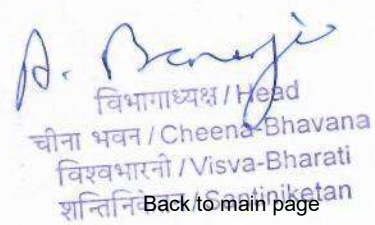 A. Banerjee
विभागाध्यक्ष / Head
चीना भवन / Cheena-Bhavana
विश्वभारती / Visva-Bharati
/ Santiniketan
Back to main page